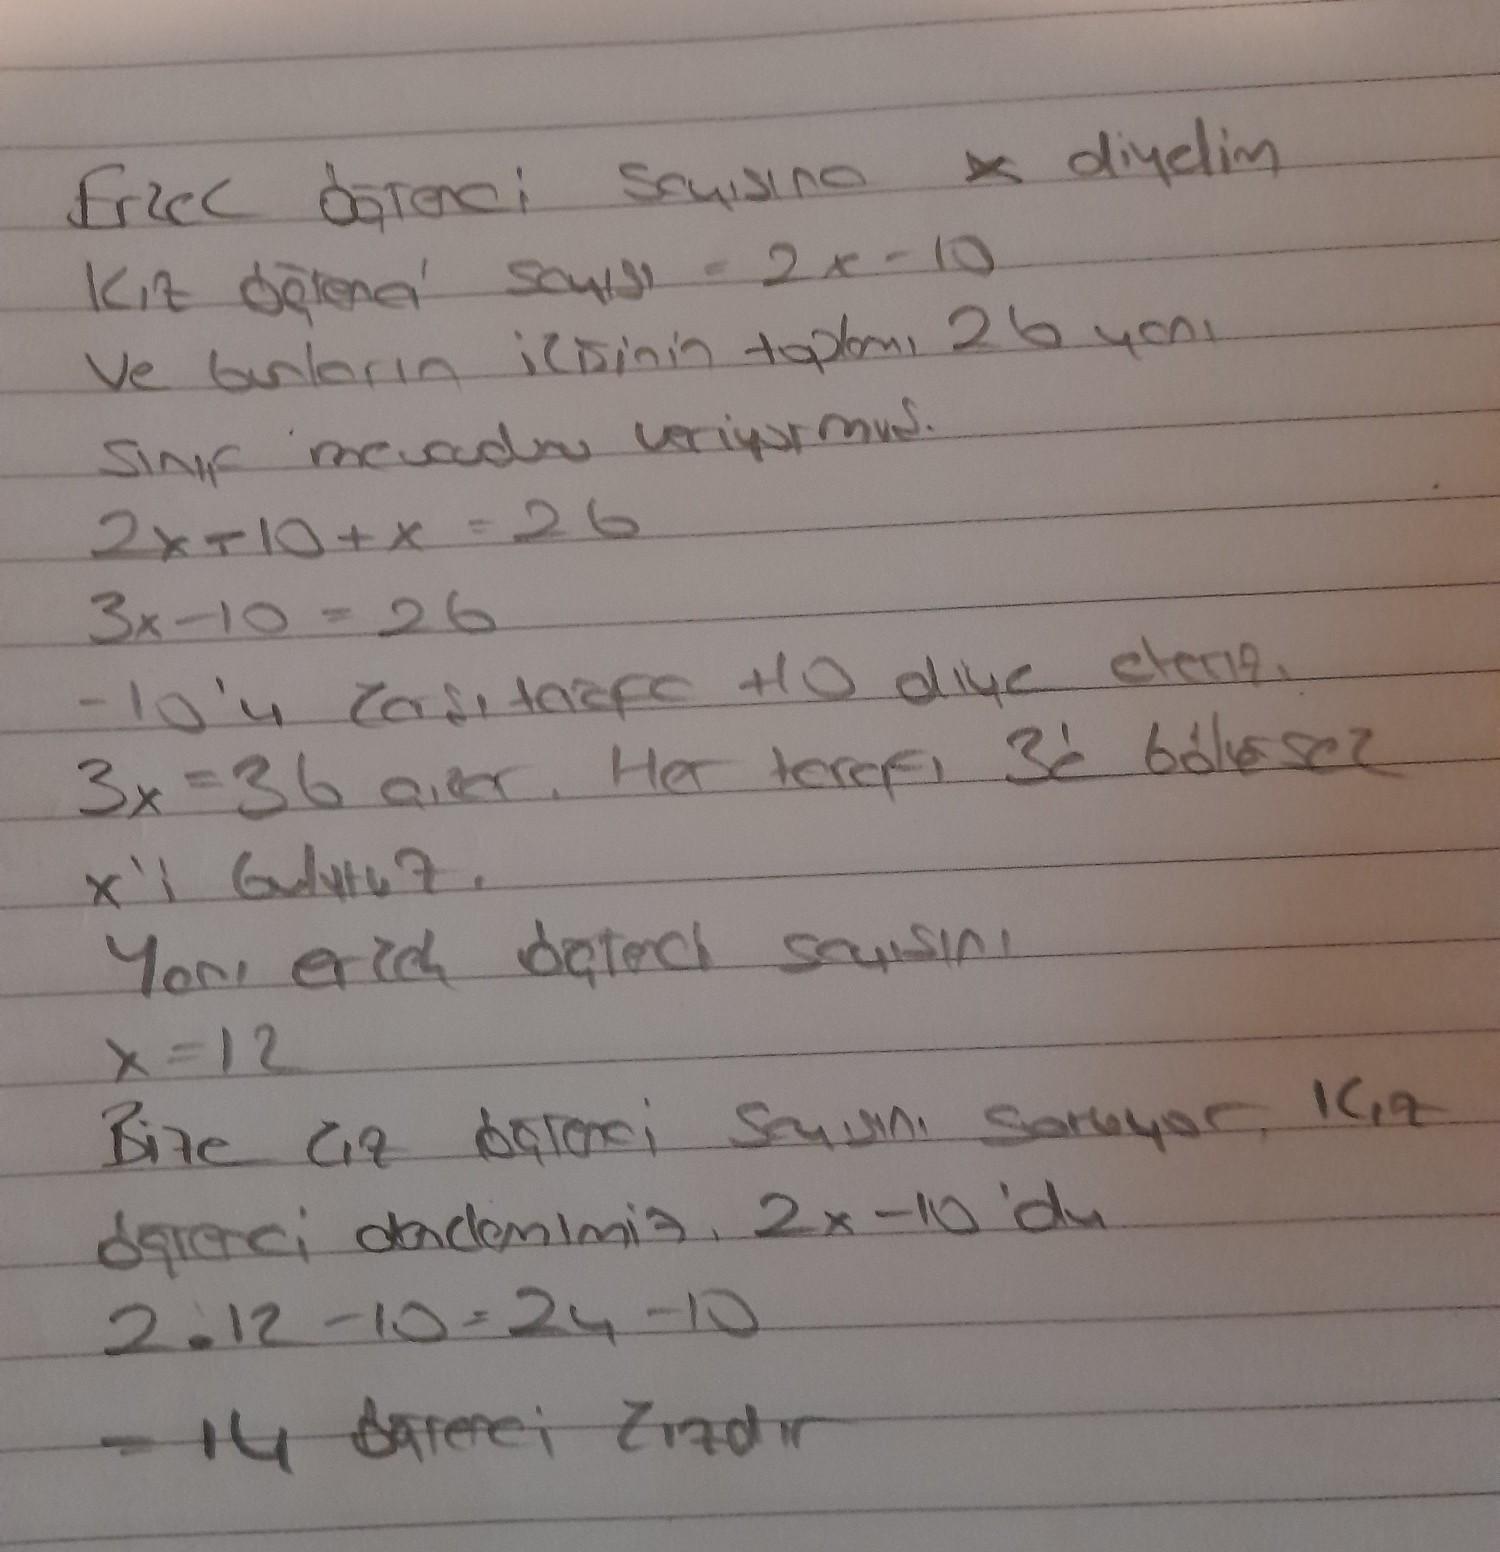 Erkek öğrenci sayısına x diyelim
Kız öğrenci sayısı = 2x-10
Ve bunların ikisinin toplamı 26 yani
sınıf mevcudunu veriyormuş.
2x-10+x = 26
3x-10 = 26
-10'u karşı tarafa +10 diye atarız.
3x=36 olur. Her tarafı 3'e bölersek
x'i buluruz.
Yani erkek öğrenci sayısını
x=12
Bize kız öğrenci sayısını soruyor. Kız
öğrenci denklemimiz. 2x-10'du
2.12-10=24-10
= 14 öğrenci kızdır